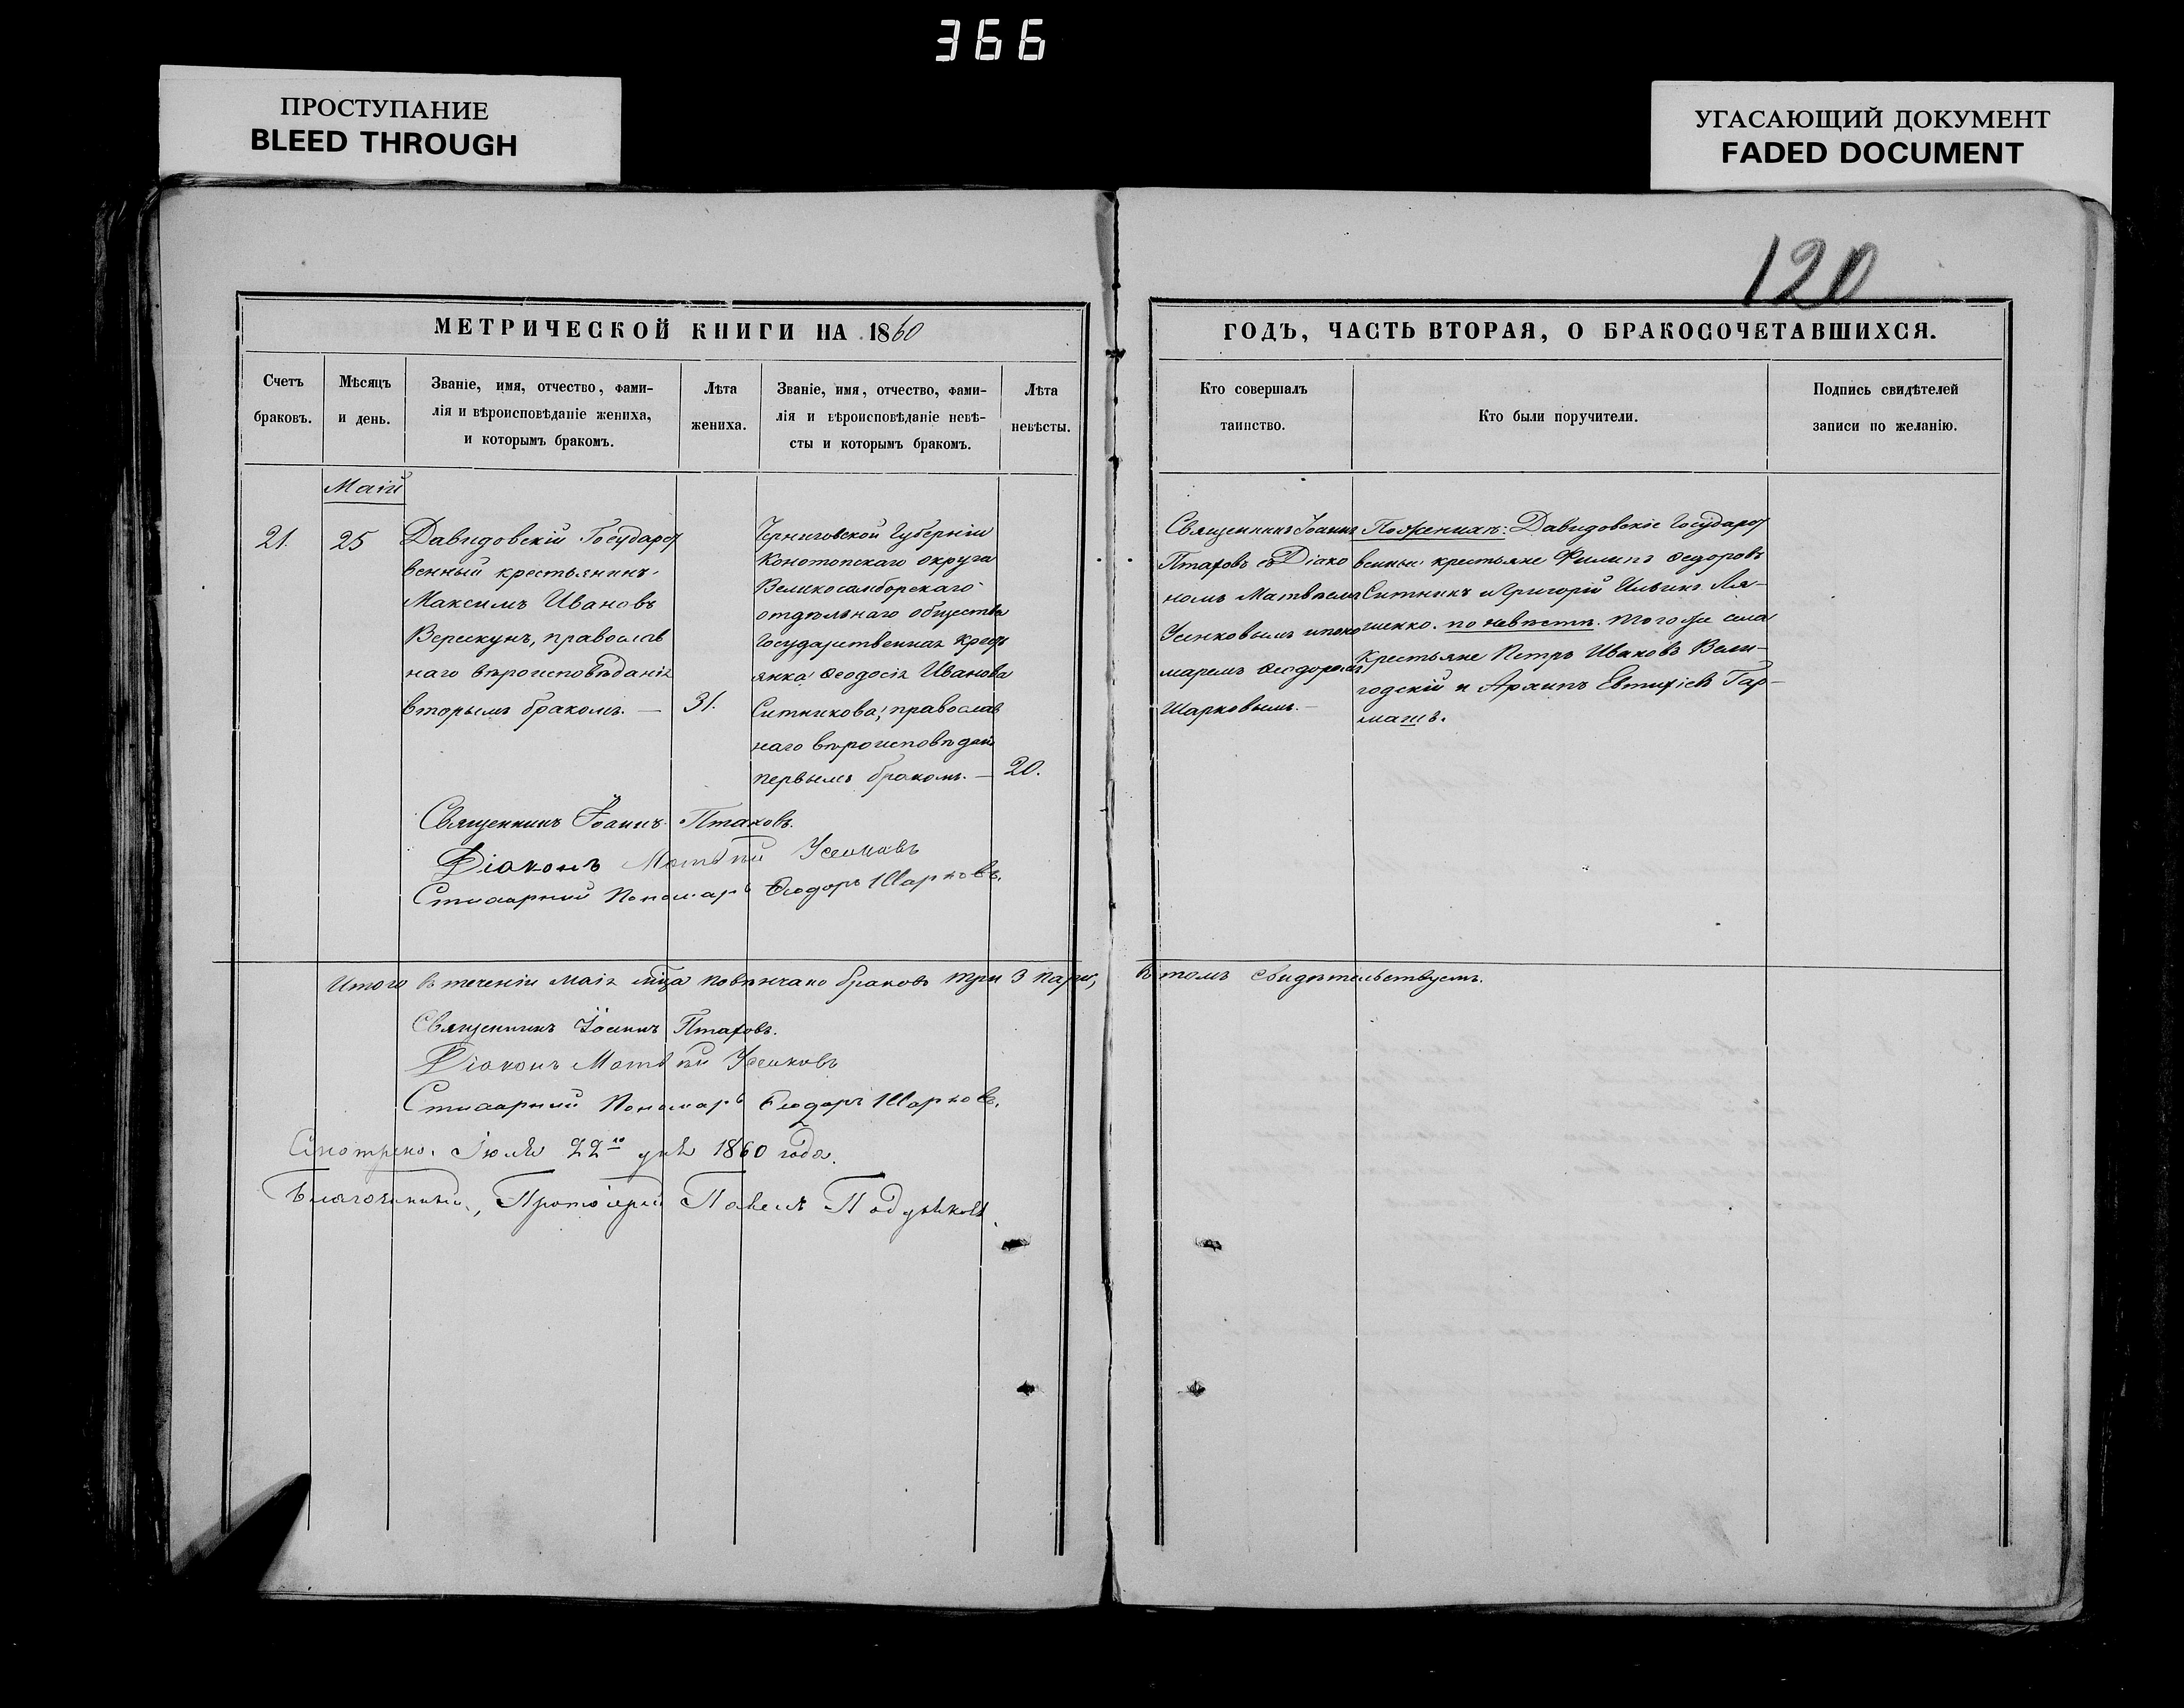 366
ПРОСТУПАНИЕ
BLEED THROUGH
УГАСАЮЩИЙ ДОКУМЕНТ
FADED DOCUMENT
120
МЕТРИЧЕСКОЙ КНИГИ НА 1860
Счетъ браковъ.
Мѣсяцъ и день.
Званіе, имя, отчество, фами-
лія и вѣроисповѣданіе жениха,
и которымъ бракомъ.
Лѣта жениха.
Званіе, имя, отчество, фами-
лія и вѣроисповѣданіе невѣ-
сты и которымъ бракомъ.
Лѣта невѣсты.
Маій
21.
25
Давидовскій Государст
венный крестьянинъ
Максимъ Ивановъ
Верескунъ, православ
наго вѣроисповѣданія
вторымъ бракомъ. —
31.
Черниговской Губерніи
Конотопскаго округа
Великосамборскаго
отдѣльнаго общества
Государственная крест
янка Ѳеодосія Иванова
Ситникова, православ
наго вѣроисповѣдані
первымъ бракомъ. —
20.
Священникъ Іоаннъ Птаховъ.
Діаконъ Матвѣй Усенковъ
Стихарный Пономарь Ѳеодоръ Шарковъ.
Итого въ теченіи маія мѣца повѣнчано браковъ три 3 пары,
Священникъ Іоаннъ Птаховъ.
Діаконъ Матвѣй Усенковъ
Стихарный Пономарь Ѳеодоръ Шарковъ.
Смотрено. Іюля 22го дня 1860 года.
Благочинный, Протоіерей Павелъ
ГОДЪ, ЧАСТЬ ВТОРАЯ, О БРАКОСОЧЕТАВШИХСЯ.
Кто совершалъ
таинство.
Кто были поручители.
Подпись свидѣтелей
записи по желанію.
Священникъ Іоаннъ
Птаховъ съ Діако
номъ Матвѣемъ
Усенковымъ и поно
маремъ Ѳеодоромъ
Шарковымъ. —
По женихѣ: Давидовскіе Государст
венные крестьяне Филипъ Ѳедоровъ
Ситникъ и Григорій Ильинъ Ля-
шенко. по невѣстѣ. того же села
крестьяне Петръ Ивановъ Вели-
годскій и Архипъ Евтихіевъ Гар-
машъ.
въ томъ свидѣтельствуемъ.